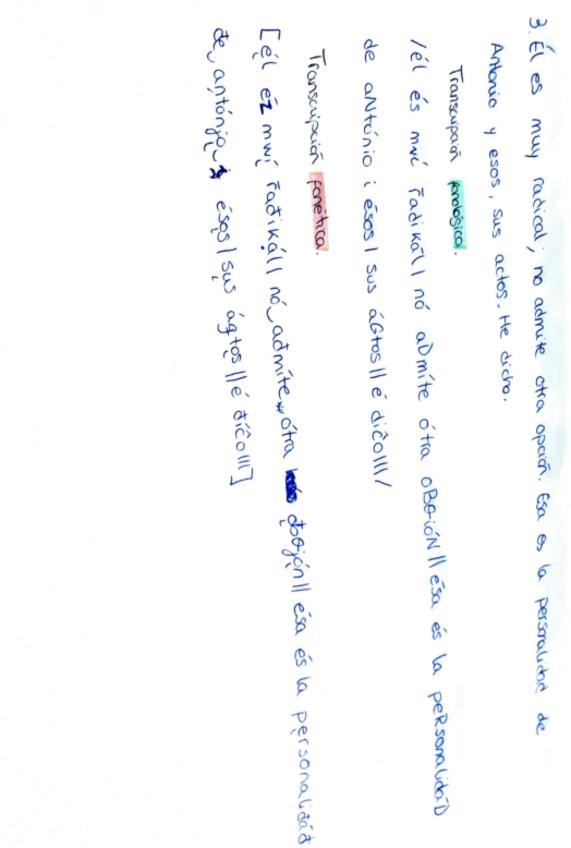 3. Él es muy radical; no admite otra opción. Esa es la personalidad de
Antonio y esos, sus actos. He dicho.
Transcripción fonológica.
/él és muí r̄adikál| nó aDmíte ótra oBθióN|| ésa és la peRsonalidáD
de aNtónio i ésos| sus áGtos|| é díĉo|||/
Transcripción fonética.
[él éz mwí̯ r̄ađikál| nó‿ađmíte‿ótra ọƀθjọ́n|| ésa és la pẹrsonaliđáđ
đe‿an̪tónjo‿i̯ ésọs| sus ágtọs|| é đíĉo|||]